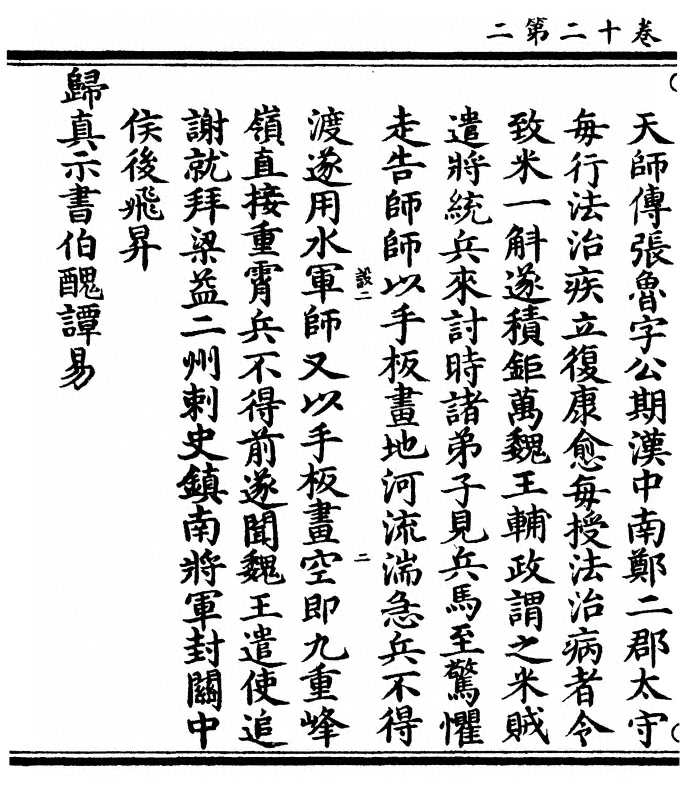 卷十二第二
天師傳張魯字公期漢中南鄭二郡太守
每行法治疾立復康愈每授法治病者令
致米一斛遂積鉅萬魏王輔政謂之米賊
遣將統兵來討時諸弟子見兵馬至驚懼
走告師師以手板畫地河流湍急兵不得
設二
二
渡遂用水軍師又以手板畫空即九重峰
嶺直接重霄兵不得前遂聞魏王遣使追
謝就拜梁益二州刺史鎮南將軍封關中
侯後飛昇
歸真示書伯醜譚易